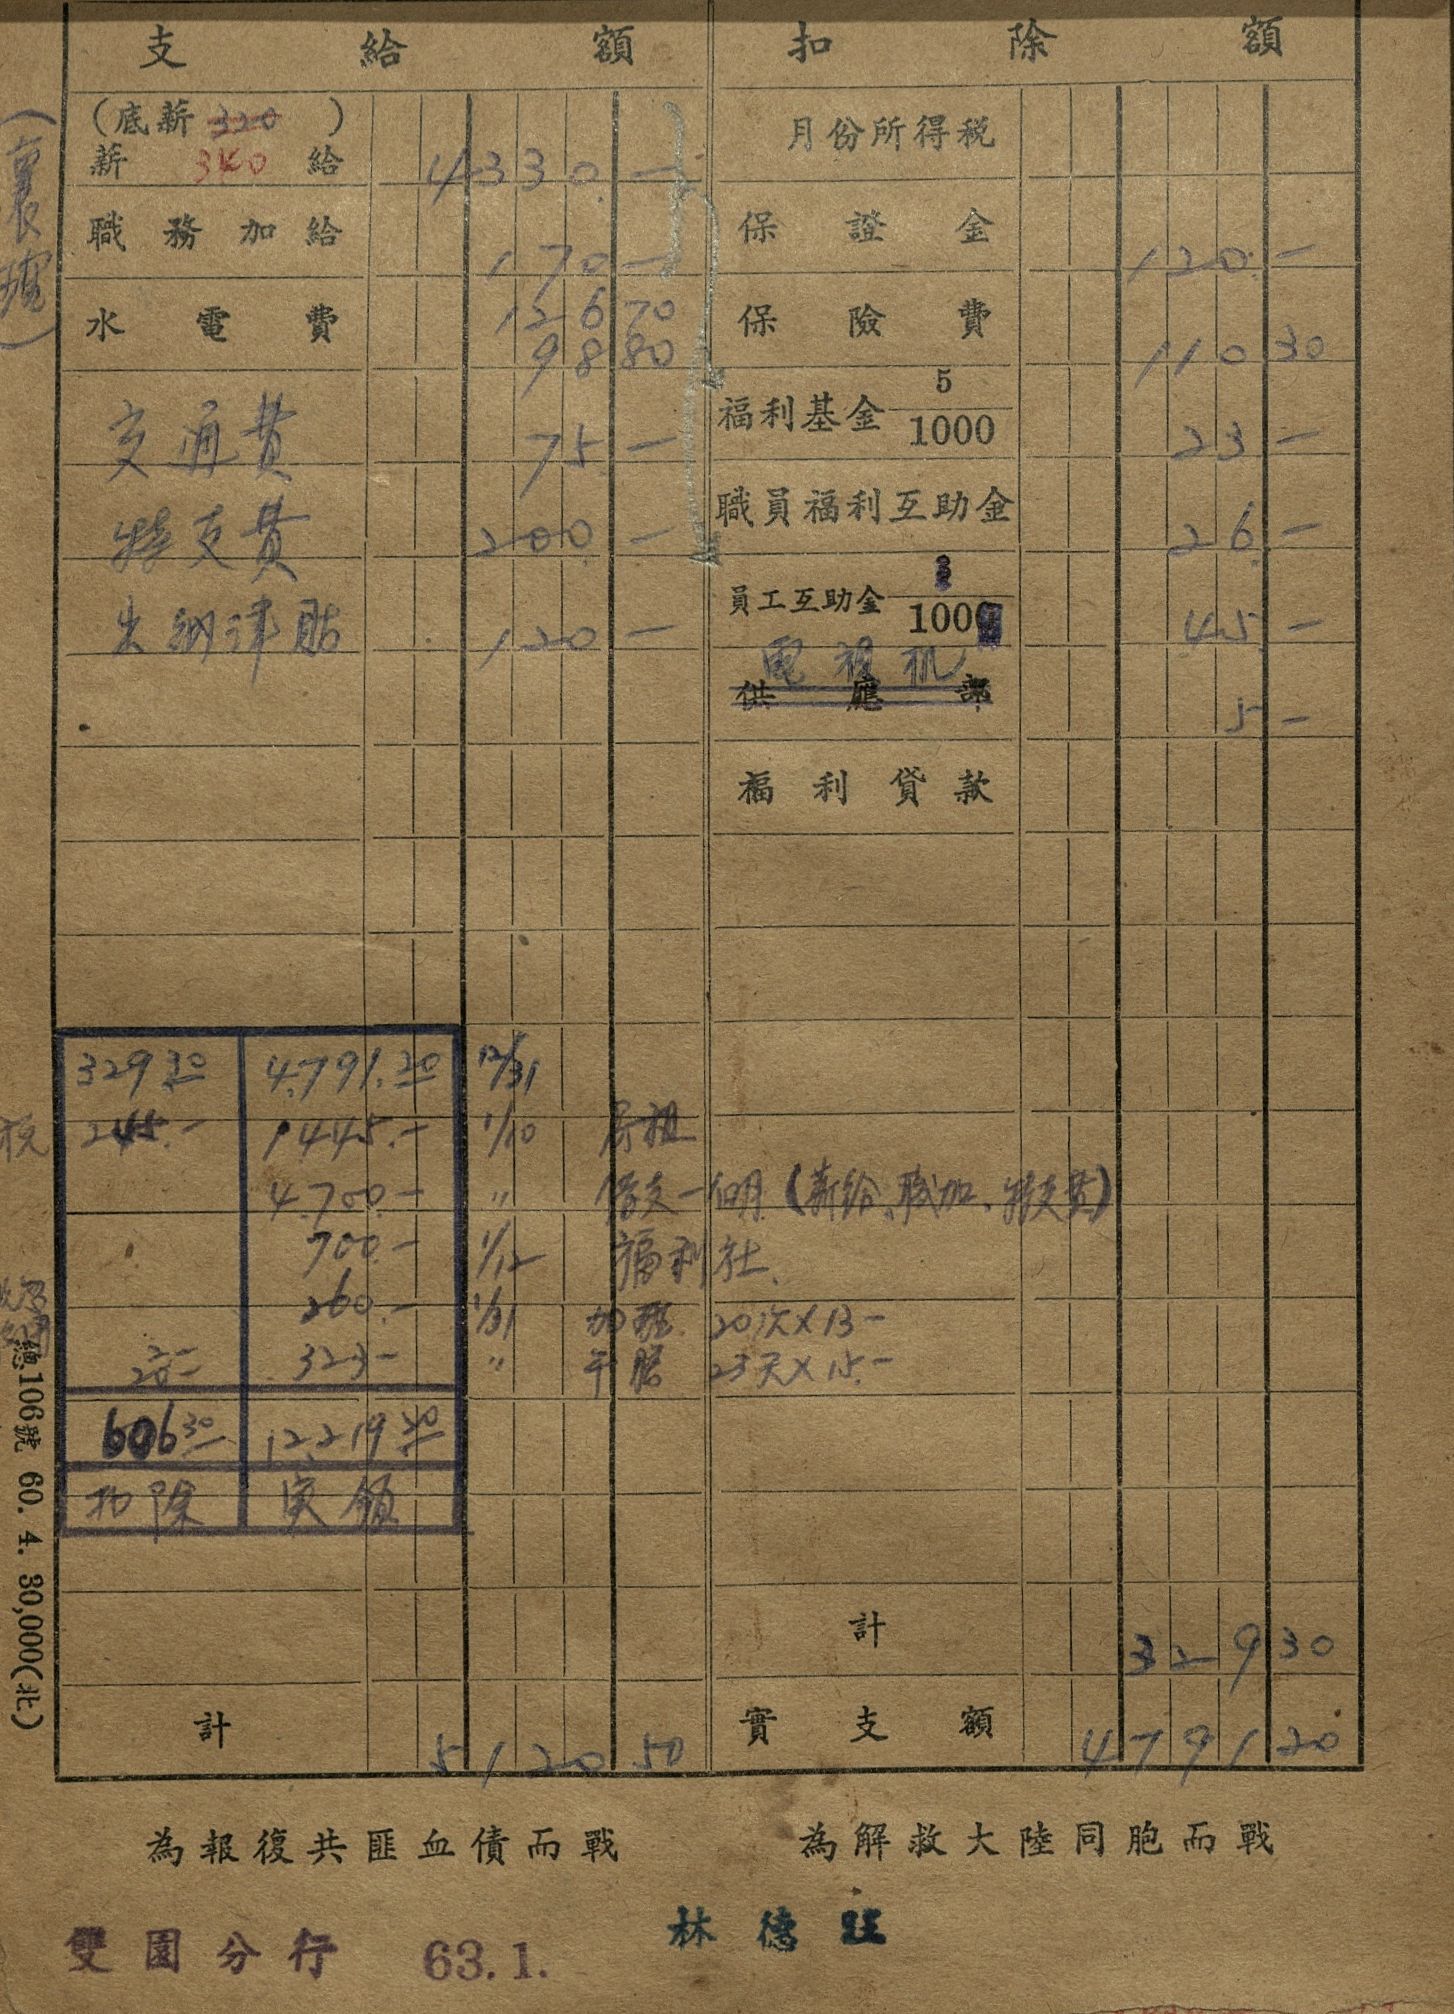 支給額 扣除額
(底薪 320 )
薪 340 給 4330.—
職務加給 170—
水電費 126 70
98 80
交通費 75—
特支費 200.—
出納津貼 120—
月份所得稅
保證金 120.—
保險費 110 30
福利基金 5/1000 23—
職員福利互助金 26.—
員工互助金 1000 45—
電視机
供應部 5—
福利貸款
329.30 4,791.20 12/31
稅 245.— 1,445.— 1/10 房租
4,700.— 〃 借支一個月(薪給、職加、特支費)
700.— 1/12 福利社
260.— 1/31 加班 20次×13—
323— 〃 午膳 23天×15.—
606 30 12,219 20
扣除 実領
計 329 30
計 5120 50
實支額 4791 20
為報復共匪血債而戰 為解救大陸同胞而戰
雙園分行 63.1. 林德旺
總106號 60. 4. 30,000(北)